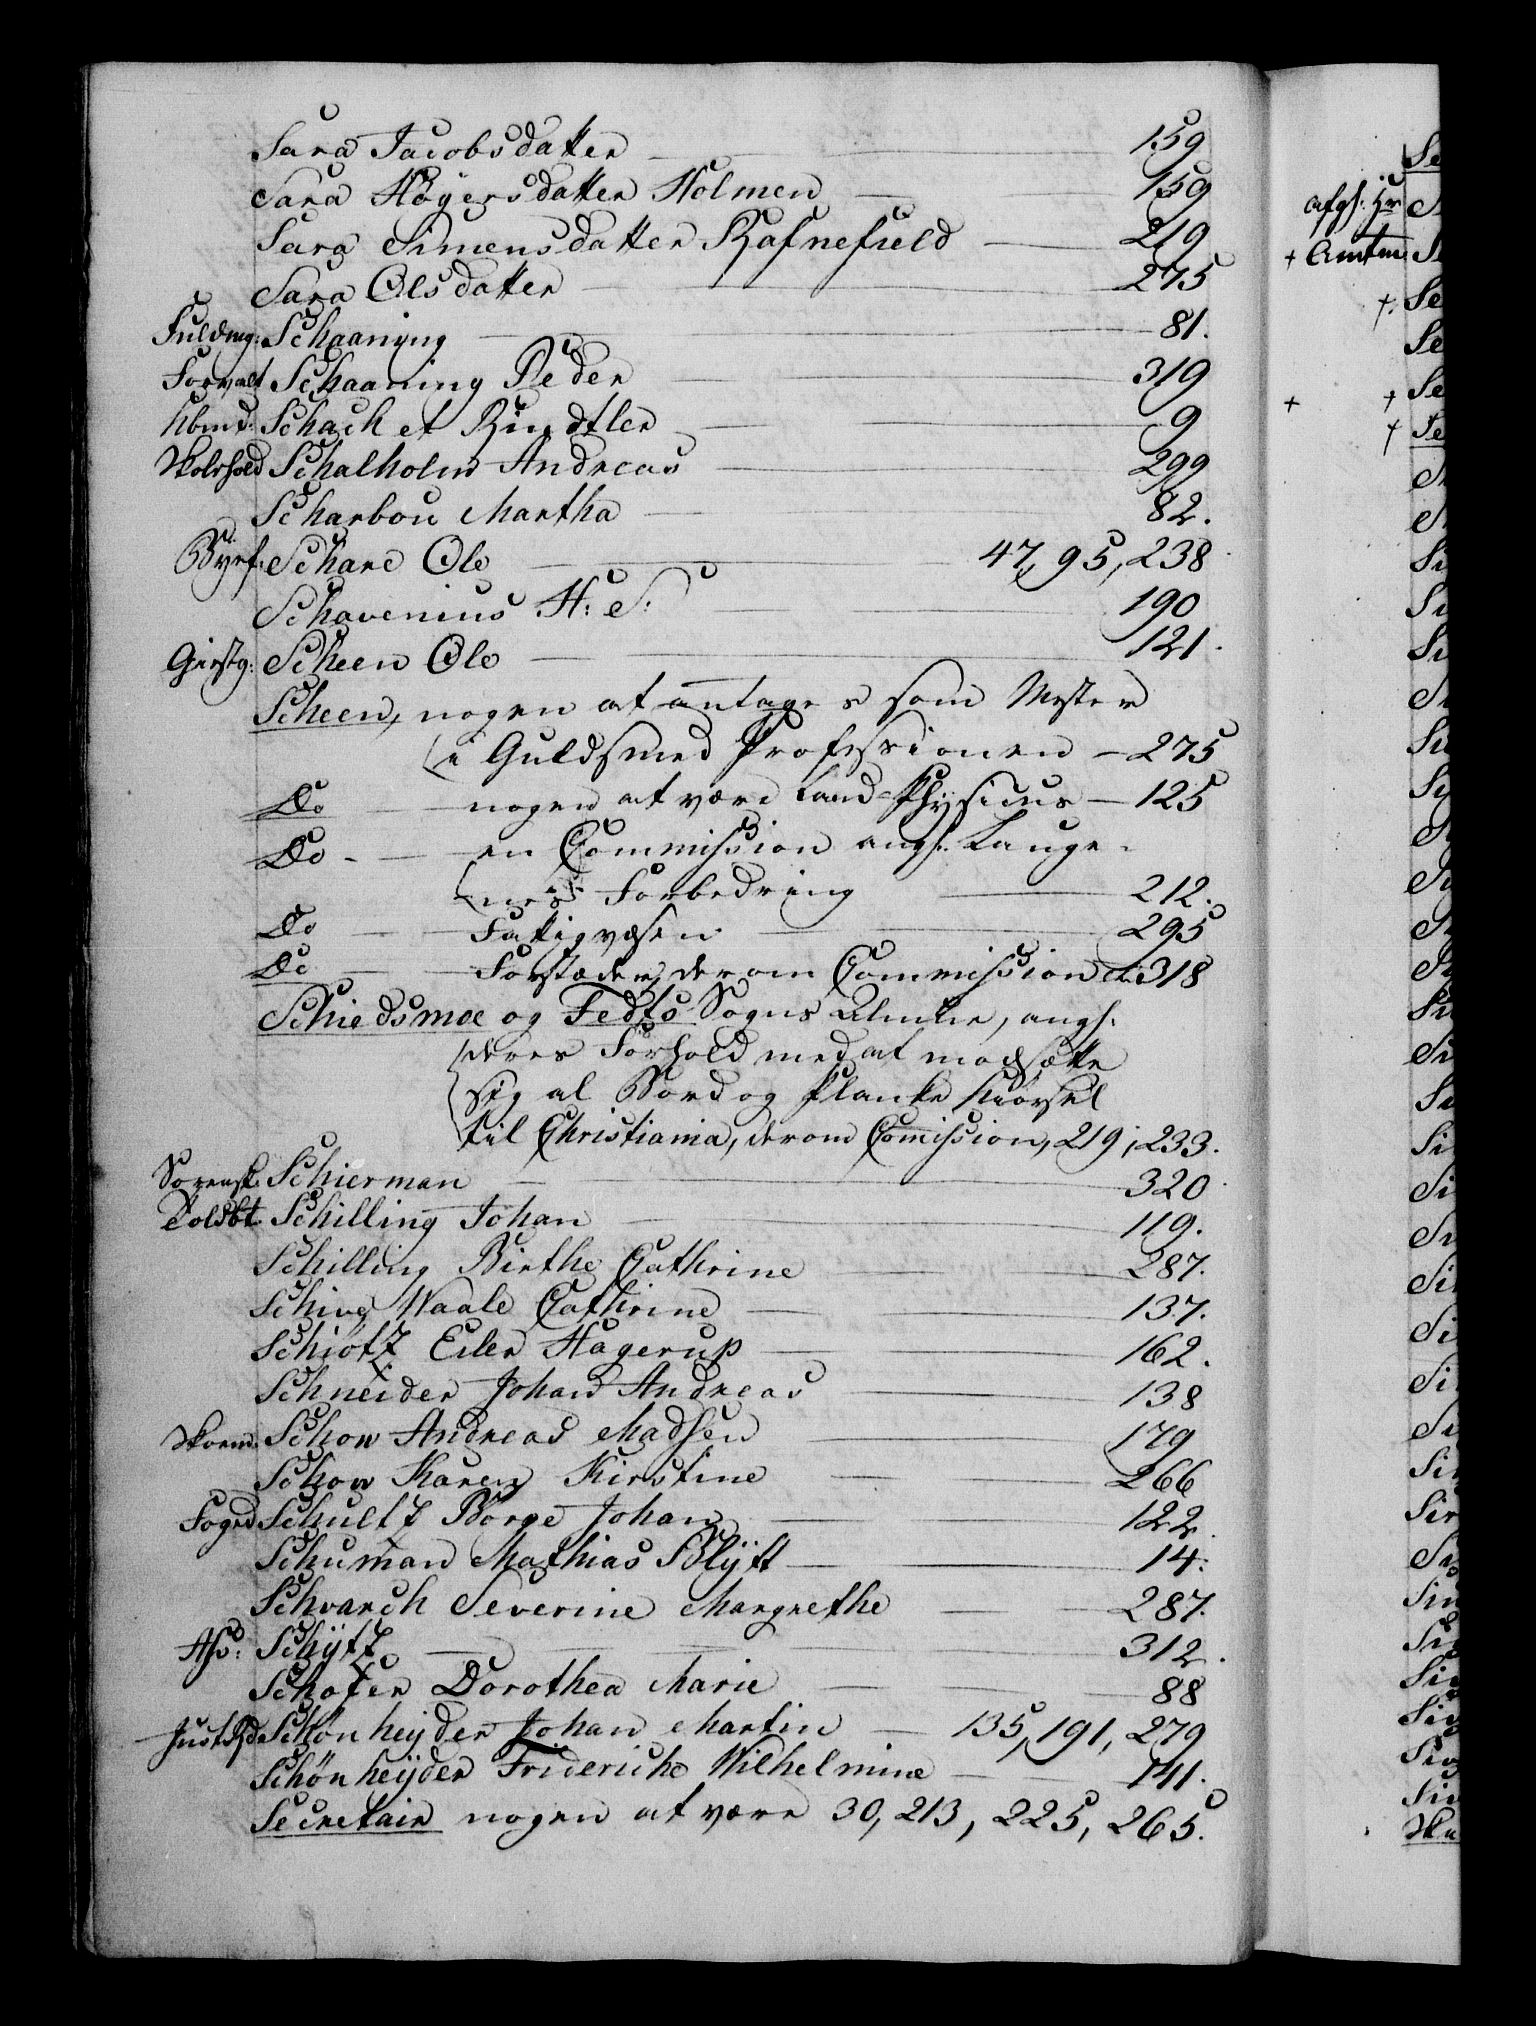 Sara Jacobsdatter 159
Sara Høyersdatter Holmen 159
Sara Simensdatter Rafnefield 219
Sara Olsdatter 275
Fuldmg: Schaaning 81.
Forvalt Schaaning Peder 319
Kbmd: Schach et Rindtler 9
Skolehold Schalholm Andreas 299
Scharbou Martha 82.
Byef: Schare Ole 47, 95, 238
Schavenius H: S: 190
Giestg: Scheen Ole 121.
Scheen, nogen at antages som Mester
i Guldsmed Professionen 275
Do nogen at være Land Physicus 125
Do en Commission angl. Lauge-
nes Forbedring 212.
Do Fattigvæsen 295
Do Forstæder, derom Commission 318
Schiedsmoe og Fedts Sogns Almue, angl.
deres Forhold med at modsætte
sig al Bord og Planke Kiørsel
til Christiania, derom Comission, 219, 233.
Sorensk: Schierman 320
Toldbt. Schilling Johan 119.
Schilling Birthe Cathrine 287.
Schive Waale Cathrine 137.
Schiøtz Eiler Hagerup 162.
Schneider Johan Andreas 138
Skoem: Schow Andreas Madsen 179
Schow Karen Kirstine 266
Foged Schultz Børge Johan 122.
Schuman Mathias Blÿtt 14.
Schvarch Severine Margrethe 287.
Ass: Schÿtz 312.
Schøfer Dorothea Marie 88
Justrd Schønheÿder Johan Martin 135, 191, 279
Schønheÿder Friderich Wilhelmine 141.
Secretair nogen at være 30, 213, 225, 265.
afgl. Hr
+ Amtm.